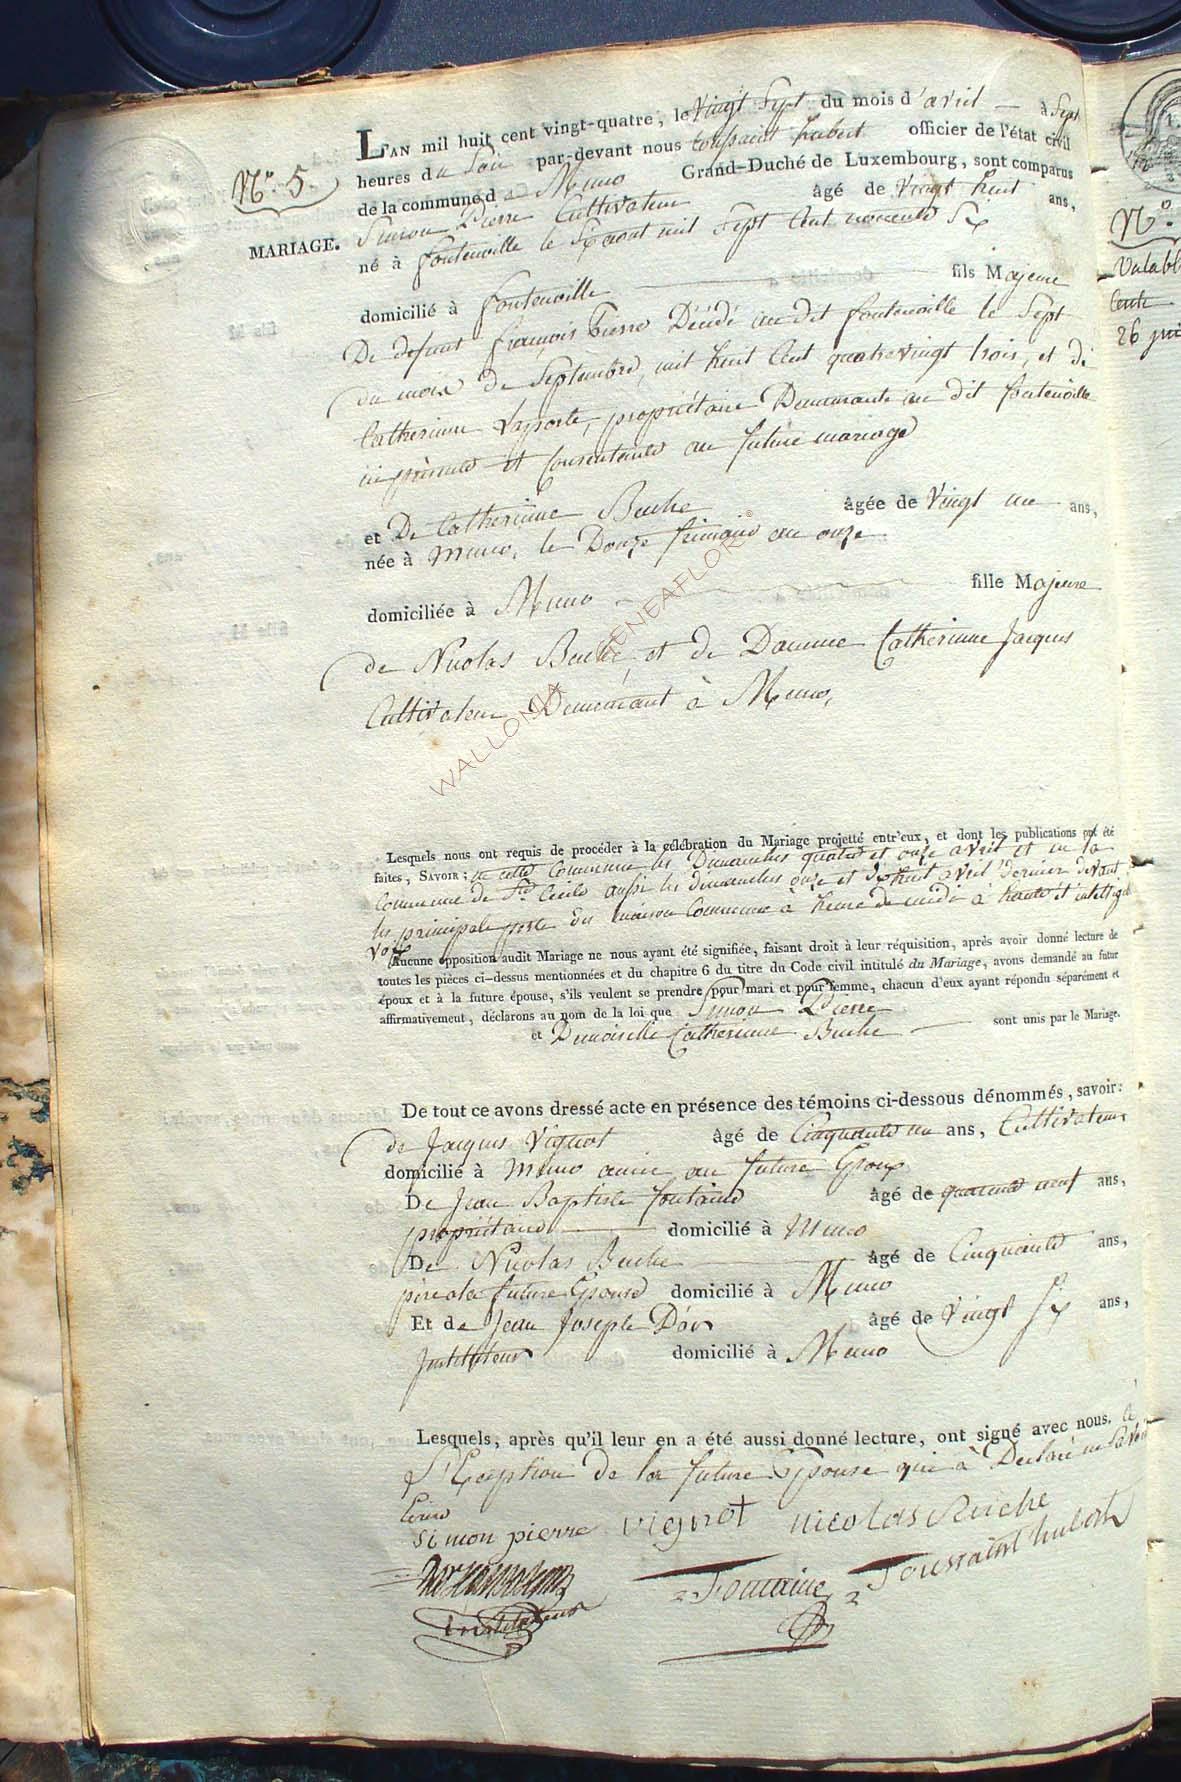 L'AN mil huit cent vingt-quatre, le Vingt Sept du mois d'avril — à Sept
heures du Soir par-devant nous toussaint hubert officier de l'état civil
de la commune de Muno Grand-Duché de Luxembourg, sont comparus
N.° 5.
MARIAGE.
Simon Pierre Cultivateur âgé de Vingt huit ans,
né à fontenoille le Six aout mil Sept Cent nonante Six
domicilié à fontenoille fils Majeure
De defunt françois Pierre Décédé au dit fontenoille le Sept
du mois de Septembre, mil huit Cent quatrevingt trois, et de
Catherinne Laporte, propriétaire Demeurante au dit fontenoille
ici présente et Consentante au future mariage
et De Catherinne Buche âgée de Vingt un ans,
née à Muno, le Douze frimaire an onze
domiciliée à Muno fille Majeure
de Nicolas Buche, et de Damme Catherinne Jacques
Cultivateur Demeurant à Muno,
WALLONIA GENEAFLORE ©
Lesquels nous ont requis de procéder à la célébration du Mariage projetté entr'eux, et dont les publications ont été
faites, SAVOIR : en cette Commune les Dimanches quatre et onze avril et en la
Commune de Ste Cécile aussi les dimanches onze et dixhuit avril dernier devant
les principale porte du maison Commune à heure de midi à haute et intelligible
voix
Aucune opposition audit Mariage ne nous ayant été signifiée, faisant droit à leur réquisition, après avoir donné lecture de
toutes les pièces ci-dessus mentionnées et du chapitre 6 du titre du Code civil intitulé du Mariage, avons demandé au futur
époux et à la future épouse, s'ils veulent se prendre pour mari et pour femme, chacun d'eux ayant répondu séparément et
affirmativement, déclarons au nom de la loi que Simon Pierre
et Demoiselle Catherinne Buche — sont unis par le Mariage.
De tout ce avons dressé acte en présence des témoins ci-dessous dénommés, savoir:
de Jacques Vignot âgé de Cinquante un ans, Cultivateur
domicilié à Muno amie au future Epoux
De Jean Baptiste fontaine âgé de quarante neuf ans,
propriétaire domicilié à Muno
De Nicolas Buche âgé de Cinquante ans,
père a la future Epouse domicilié à Muno
Et de Jean Joseph Dór âgé de Vingt Six ans,
Instituteur domicilié à Muno
Lesquels, après qu'il leur en a été aussi donné lecture, ont signé avec nous. à
l'Exception de la future Epouse qui à Déclaré ne Savoir
Ecrire
Simon pierre vignot nicolas Buche
Fontaine Toussaint hubert
instituteur
N.°
26